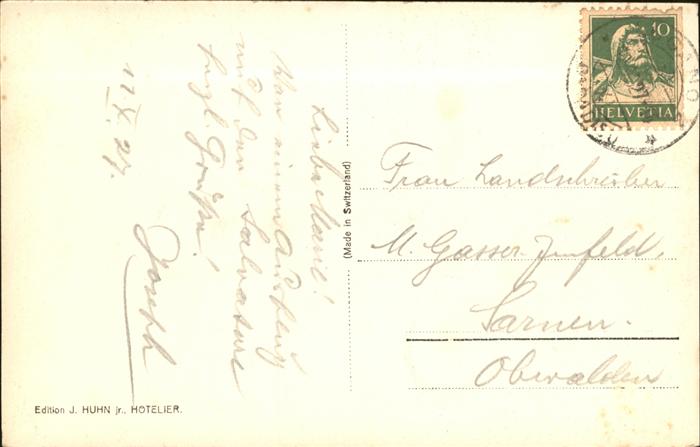 Liebe Marie!
War einem Ausflug
auf den Salvatore
herzl. Grüße!
Joseph
11. X. 27.
(Made in Switzerland)
10
HELVETIA
Frau Landschreiber
M. Gasser-Imfeld,
Sarnen.
Obwalden
Edition J. HUHN jr., HOTELIER.